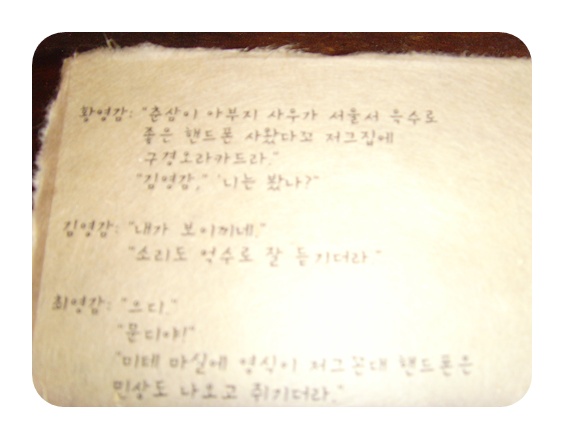 황영감: "춘삼이 아부지 사우가 서울서 윽수로
좋은 핸드폰 사왔다꼬 저그집에
구경오라카드라."
"김영감," "니는 봤나?"
김영감: "내가 보이끼네."
"소리도 억수로 잘 듣기더라"
최영감: "으디."
"문디야!"
"미테 마실에 영식이 저그꼰대 핸드폰은
민상도 나오고 쥑기더라."